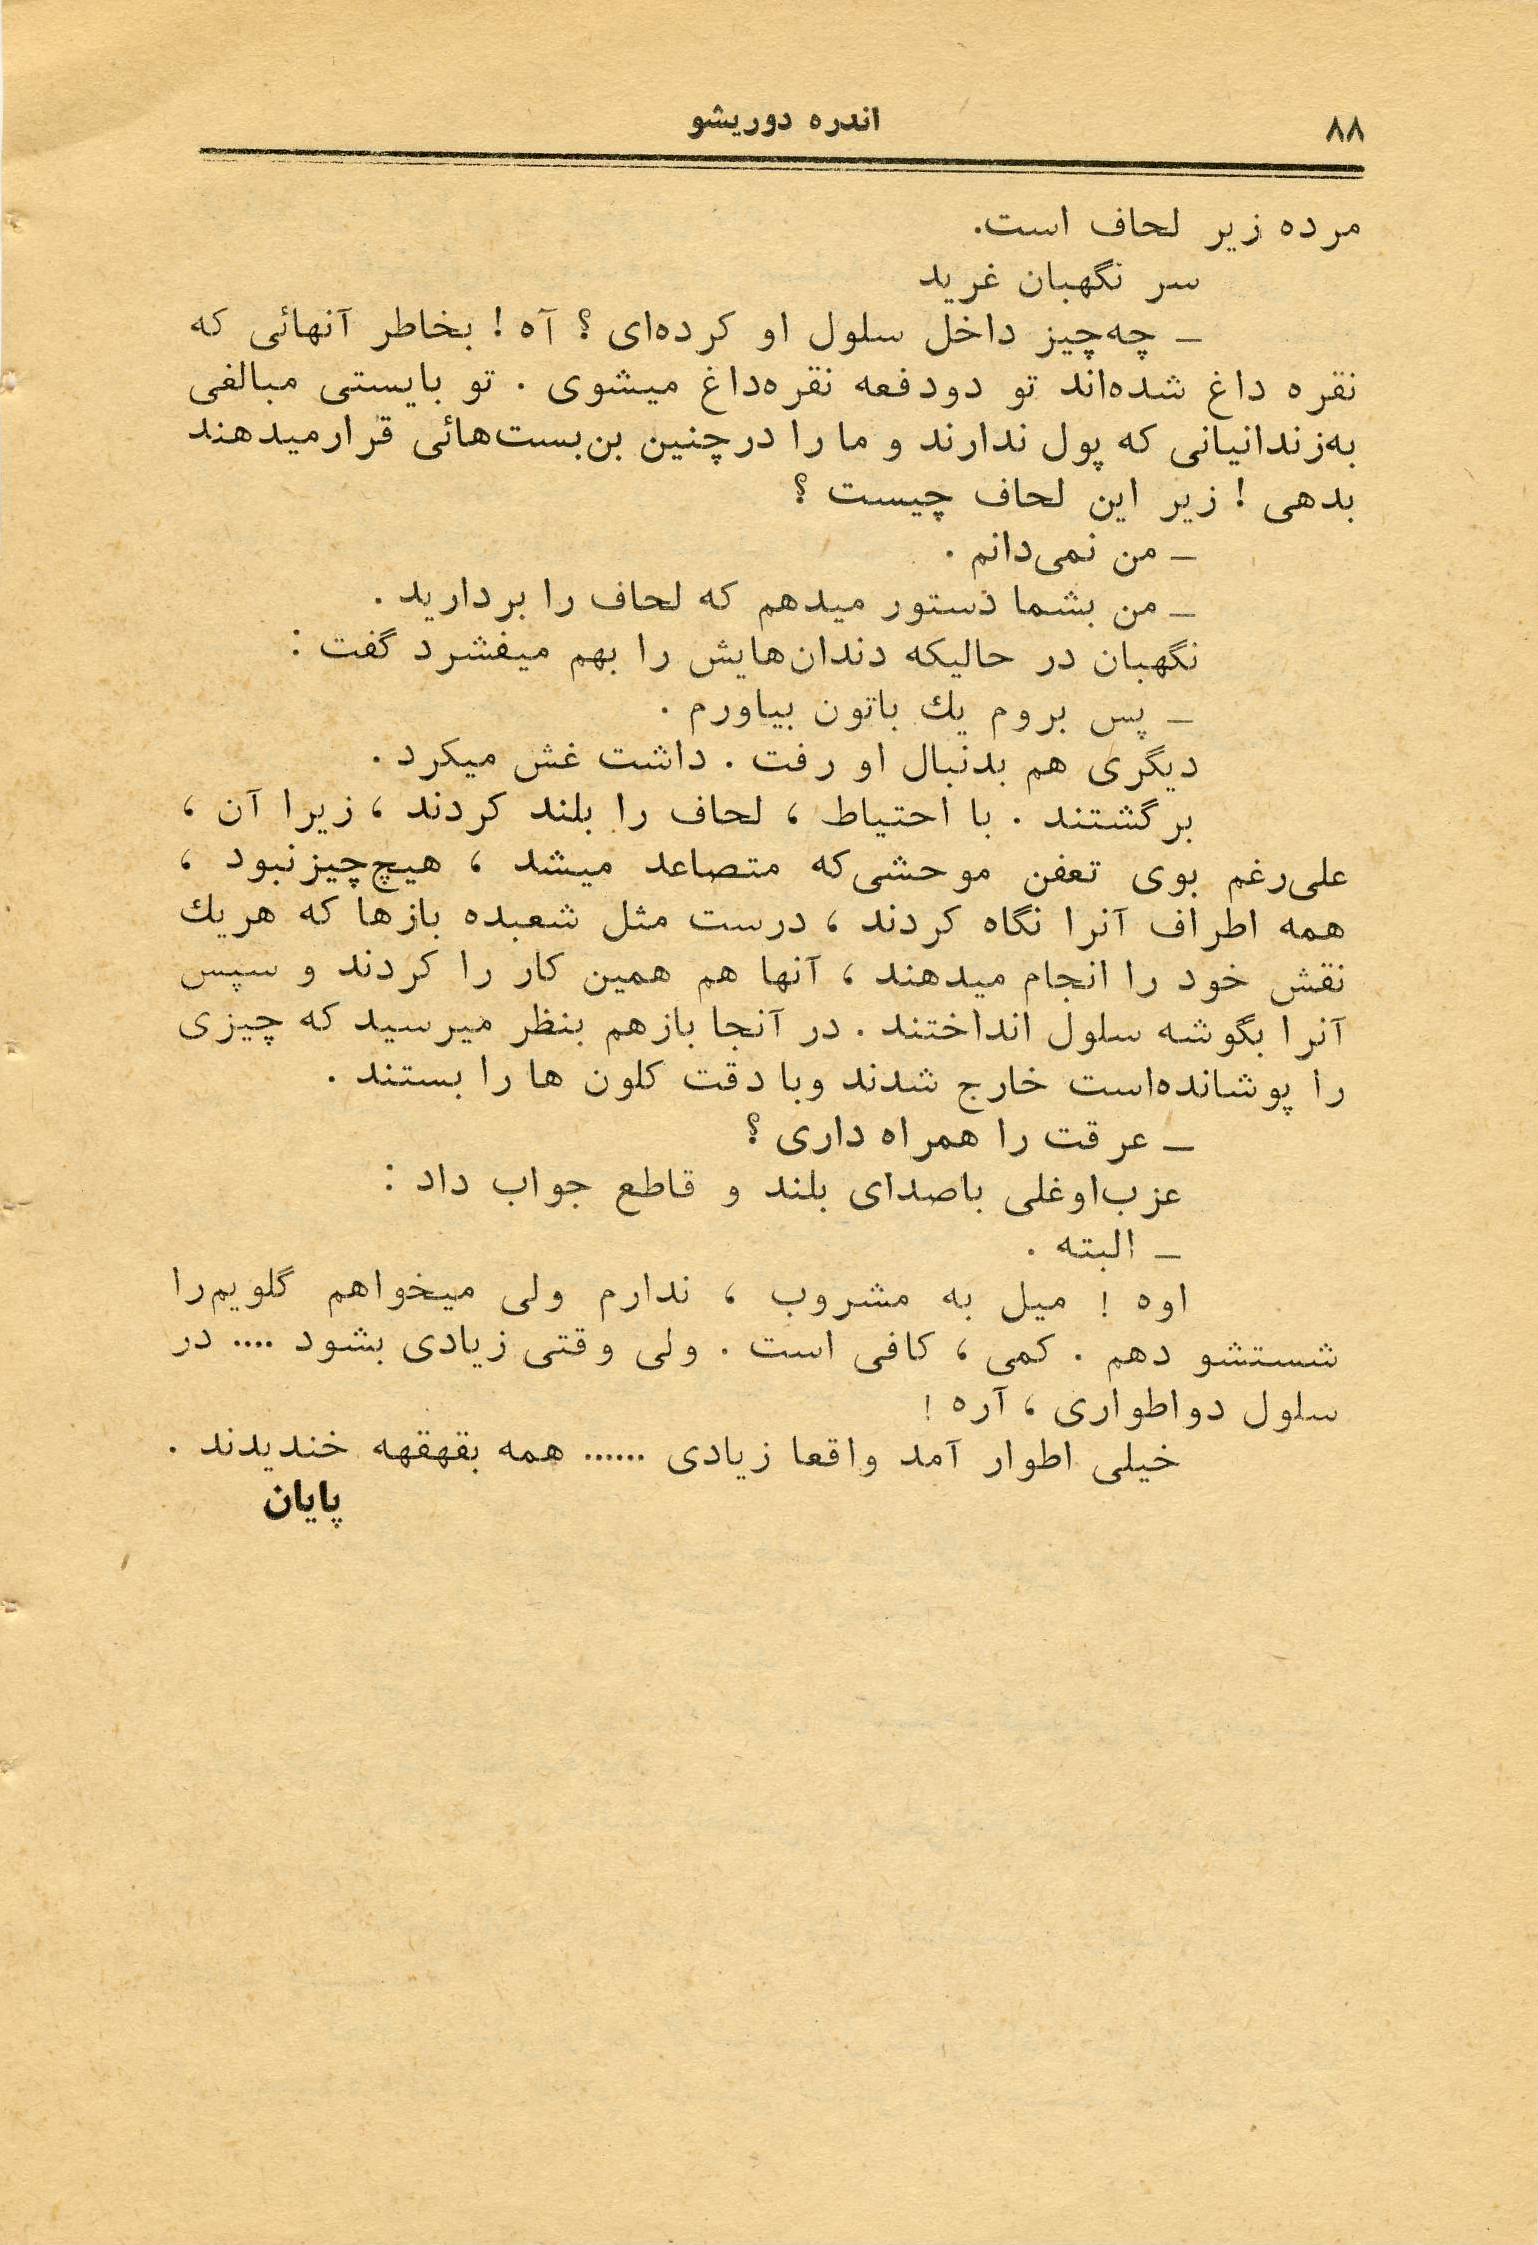 ۸۸
اندره دوریشو
مرده زیر لحاف است.
سر نگهبان غرید
ـ چه‌چیز داخل سلول او کرده‌ای ؟ آه ! بخاطر آنهائی که
نقره داغ شده‌اند تو دودفعه نقره‌داغ میشوی . تو بایستی مبالفی
به‌زندانیانی که پول ندارند و ما را درچنین بن‌بست‌هائی قرارمیدهند
بدهی ! زیر این لحاف چیست ؟
ـ من نمی‌دانم .
ـ من بشما ذستور میدهم که لحاف را بردارید .
نگهبان در حالیکه دندان‌هایش را بهم میفشرد گفت :
ـ پس بروم یك باتون بیاورم .
دیگری هم بدنبال او رفت . داشت غش میکرد .
برگشتند . با احتیاط ، لحاف را بلند کردند ، زیرا آن ،
علی‌رغم بوی تعفن موحشی‌که متصاعد میشد ، هیچ‌چیزنبود ،
همه اطراف آنرا نگاه کردند ، درست مثل شعبده بازها که هریك
نقش خود را انجام میدهند ، آنها هم همین کار را کردند و سپس
آنرا بگوشه سلول انداختند . در آنجا بازهم بنظر میرسید که چیزی
را پوشانده‌است خارج شدند وبا دقت کلون ها را بستند .
ـ عرقت را همراه داری ؟
عزب‌اوغلی باصدای بلند و قاطع جواب داد :
ـ البته .
اوه ! میل به مشروب ، ندارم ولی میخواهم گلویم‌را
شستشو دهم . کمی ، کافی است . ولی وقتی زیادی بشود .... در
سلول دواطواری ، آره !
خیلی اطوار آمد واقعا زیادی ...... همه بقهقهه خندیدند .
پایان